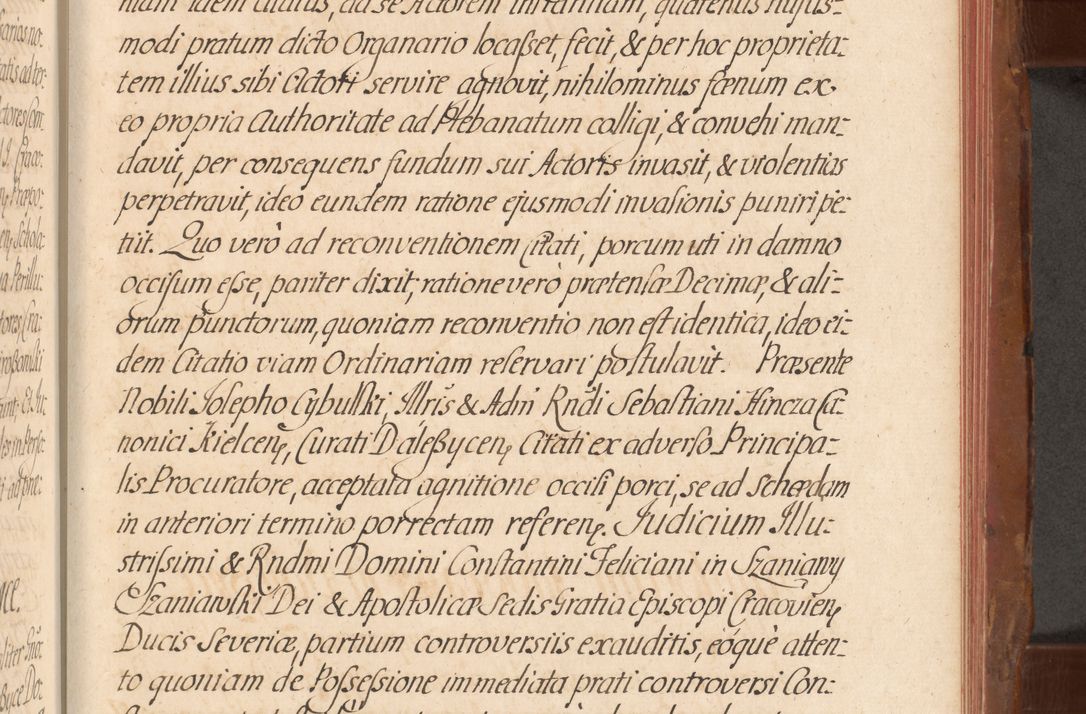 nium idem Citatus, ad se Actorem instantiam, quatenus hujus-
modi pratum dicto Organario locasset, fecit, & per hoc proprieta-
tem illius sibi Actori servire agnovit, nihilominus fœnum ex
eo propria Authoritate ad Plebanatum colligi, & convehi man-
davit, per consequens fundum sui Actoris invasit, & violentias
perpetravit, ideo eundem ratione ejusmodi invasionis puniri pe-
tiit. Quo verò ad reconventionem Citati, porcum uti in damno
occisum esse, pariter dixit, ratione verò prætensæ Decimæ, & ali-
orum punctorum, quoniam reconventio non est identica, ideo ei-
dem Citatio viam Ordinariam reservari postulavit. Præsente
Nobili Josepho Cybulski, Illris & Adm Rndi Sebastiani Hincza Ca-
nonici Kielcen, Curati Daleßycen Citati ex adverso Principa-
lis Procuratore, acceptata agnitione occisi porci, se ad Schœdam
in anteriori termino porrectam referen. Judicium Illu-
strissimi & Rndmi Domini Constantini Feliciani in Szaniawy
Szaniawski Dei & Apostolicæ Sedis Gratia Episcopi Cracovien
Ducis Severiæ, partium controversiis exauditis, eóque atten-
to quoniam de Possessione immediata prati controversi Con-